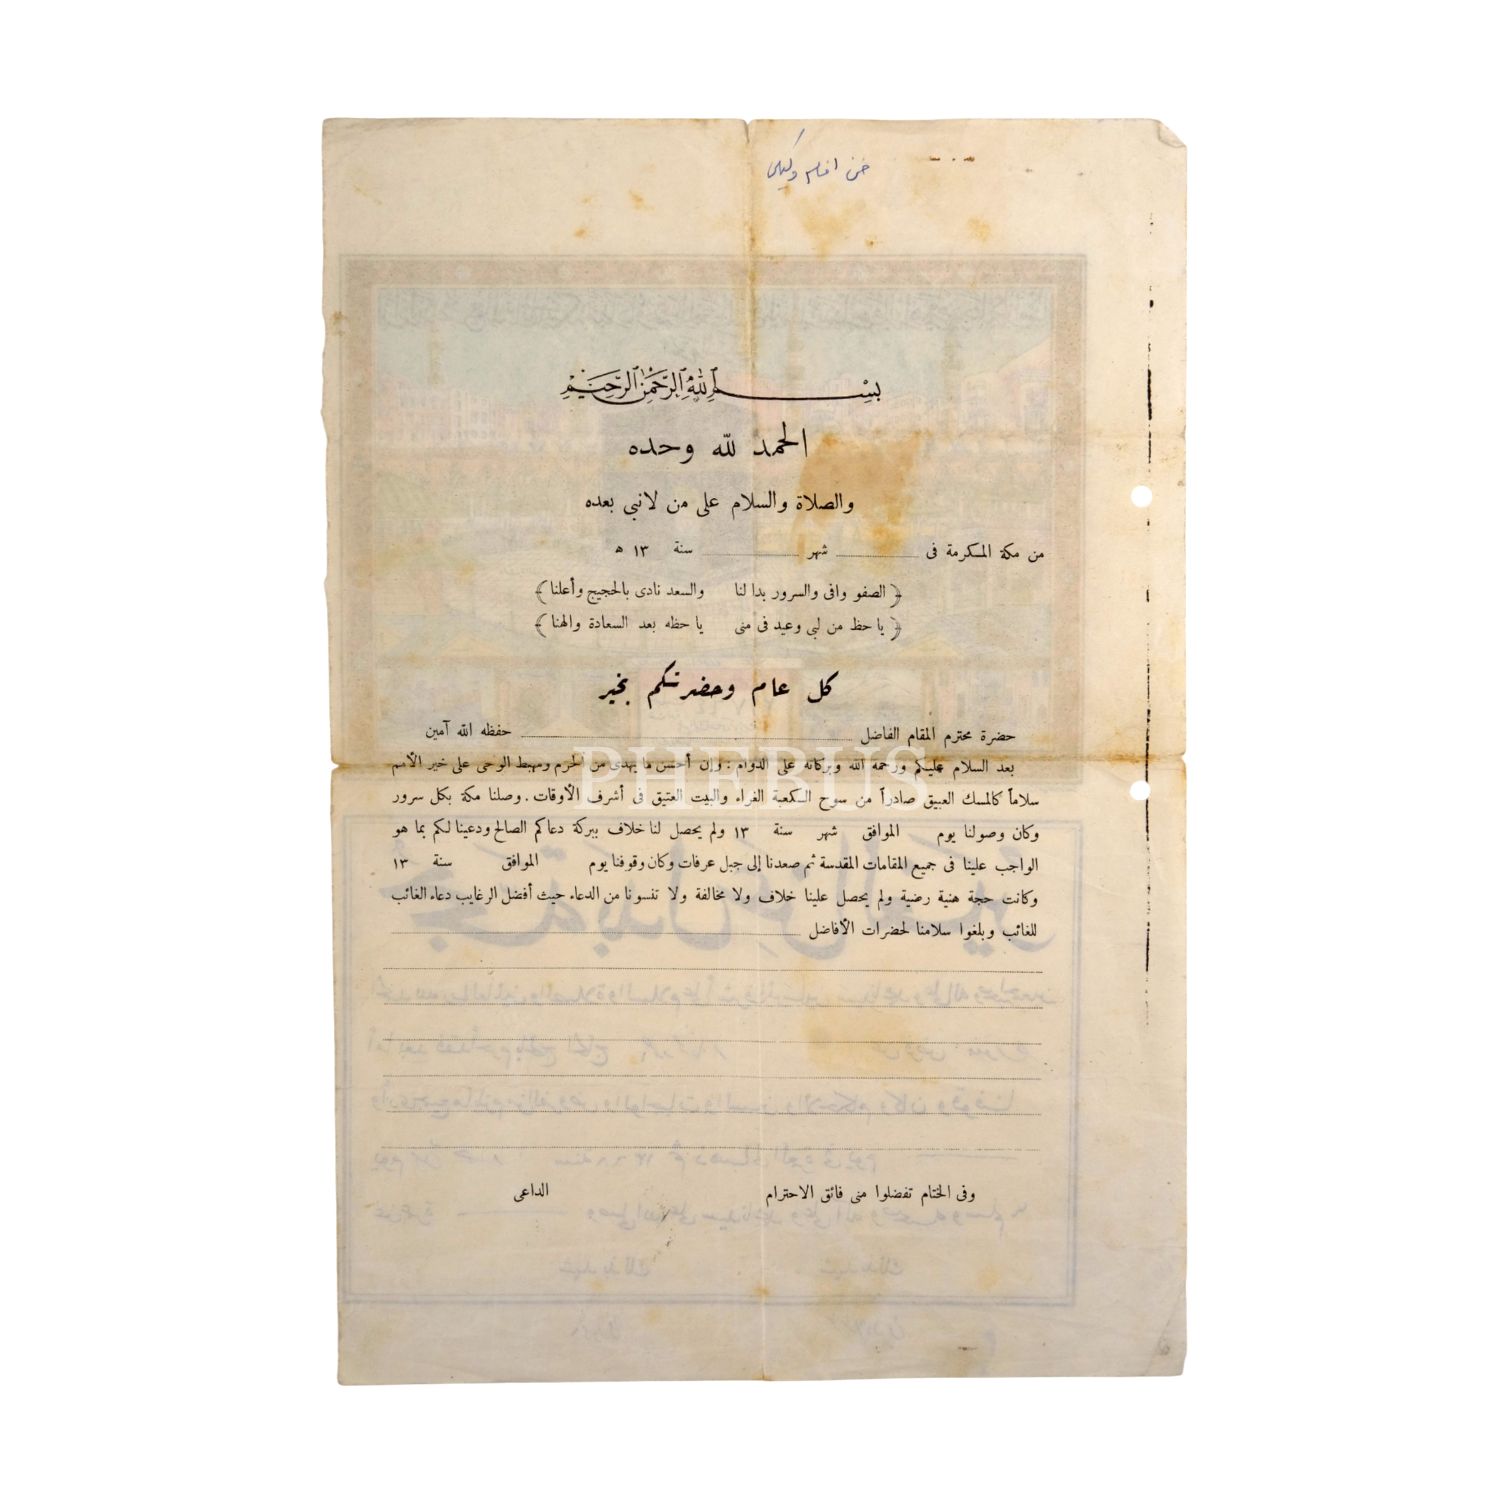 بسم الله الرحمن الرحيم
الحمد لله وحده
والصلاة والسلام على من لا نبي بعده
من مكة المكرمة فى شهر سنة ١٣ ه
﴿ الصفو وافى والسرور بدا لنا والسعد نادى بالحجيج وأعلنا ﴾
﴿ يا حظ من لبى وعيد فى منى يا حظه بعد السعادة والهنا ﴾
كل عام وحضرتكم بخير
حضرة محترم المقام الفاضل حفظه الله آمين
بعد السلام عليكم ورحمة الله وبركاته على الدوام : وإن أحسن ما يهدى من الحرم ومهبط الوحى على خير الأمم
PHEBUS
سلاماً كالمسك العبيق صادراً من سوح الكعبة الغراء والبيت العتيق فى أشرف الأوقات . وصلنا مكة بكل سرور
وكان وصولنا يوم الموافق شهر سنة ١٣ ولم يحصل لنا خلاف ببركة دعاكم الصالح ودعينا لكم بما هو
الواجب علينا فى جميع المقامات المقدسة ثم صعدنا إلى جبل عرفات وكان وقوفنا يوم الموافق سنة ١٣
وكانت حجة هنية رضية ولم يحصل علينا خلاف ولا مخالفة ولا تنسونا من الدعاء حيث أفضل الرغايب دعاء الغائب
للغائب وبلغوا سلامنا لحضرات الأفاضل
وفى الختام تفضلوا منى فائق الاحترام الداعى